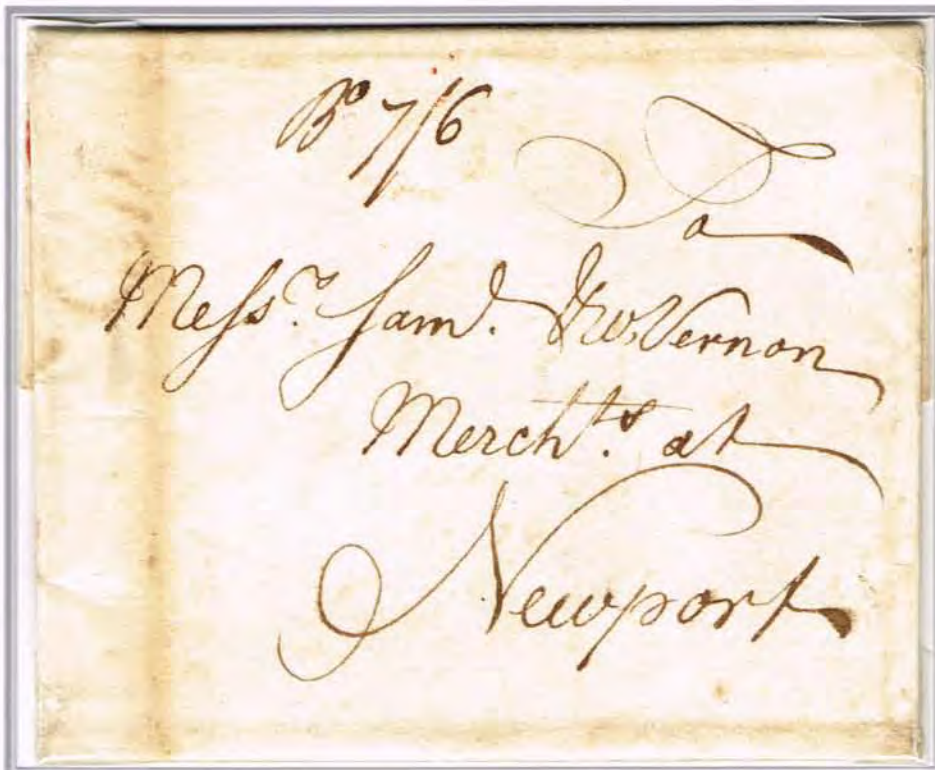 Bo 7/6
To
Messrs. Saml. & Wm Vernon
Merchts. at
Newport